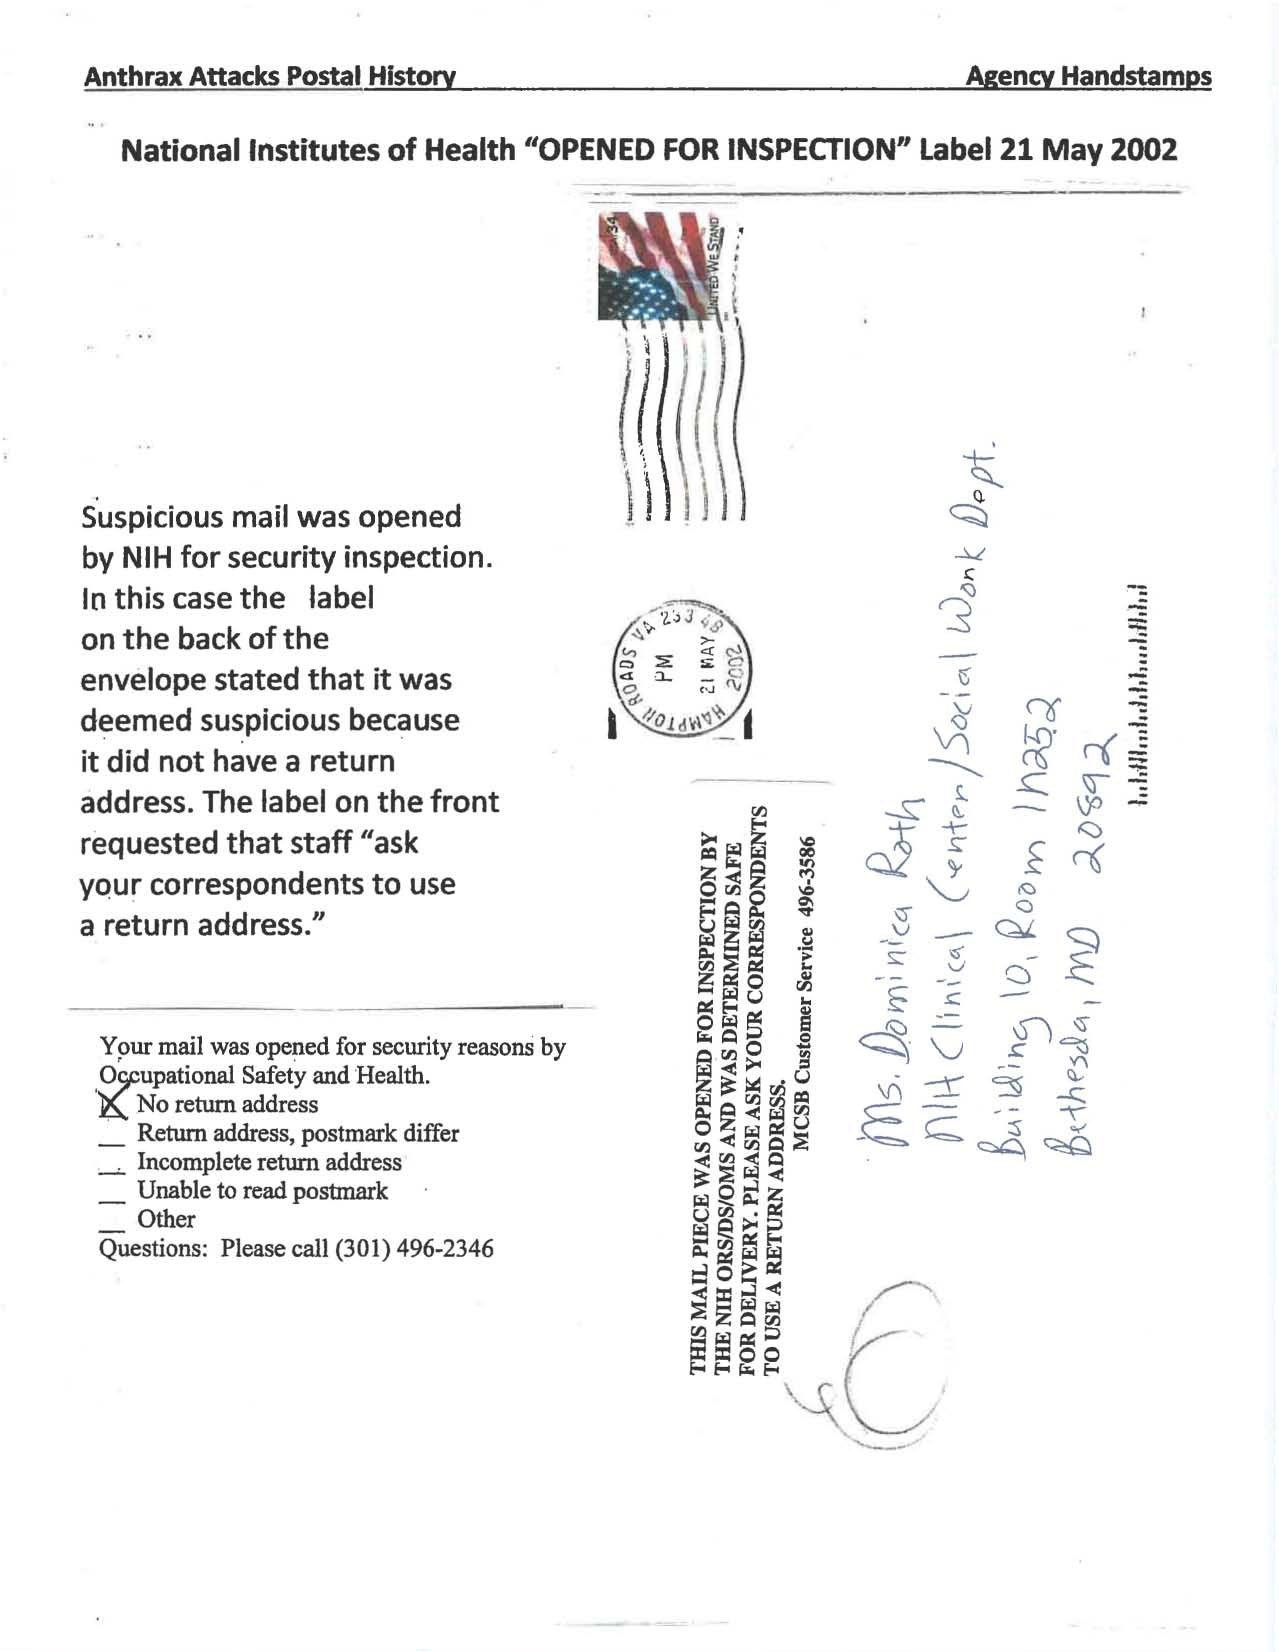 Anthrax Attacks Postal History Agency Handstamps
National Institutes of Health “OPENED FOR INSPECTION” Label 21 May 2002
USA 34
UNITED WE STAND
Suspicious mail was opened
by NIH for security inspection.
In this case the label
on the back of the
envelope stated that it was
deemed suspicious because
it did not have a return
address. The label on the front
requested that staff “ask
your correspondents to use
a return address.”
HAMPTON ROADS VA 233 4B
PM
21 MAY
2002
THIS MAIL PIECE WAS OPENED FOR INSPECTION BY
THE NIH ORS/DS/OMS AND WAS DETERMINED SAFE
FOR DELIVERY. PLEASE ASK YOUR CORRESPONDENTS
TO USE A RETURN ADDRESS.
MCSB Customer Service 496-3586
Ms. Dominica Roth
NIH Clinical Center/Social Work Dept.
Building 10, Room 1N252
Bethesda, MD 20892
Your mail was opened for security reasons by
Occupational Safety and Health.
X No return address
__ Return address, postmark differ
__ Incomplete return address
__ Unable to read postmark
__ Other
Questions: Please call (301) 496-2346